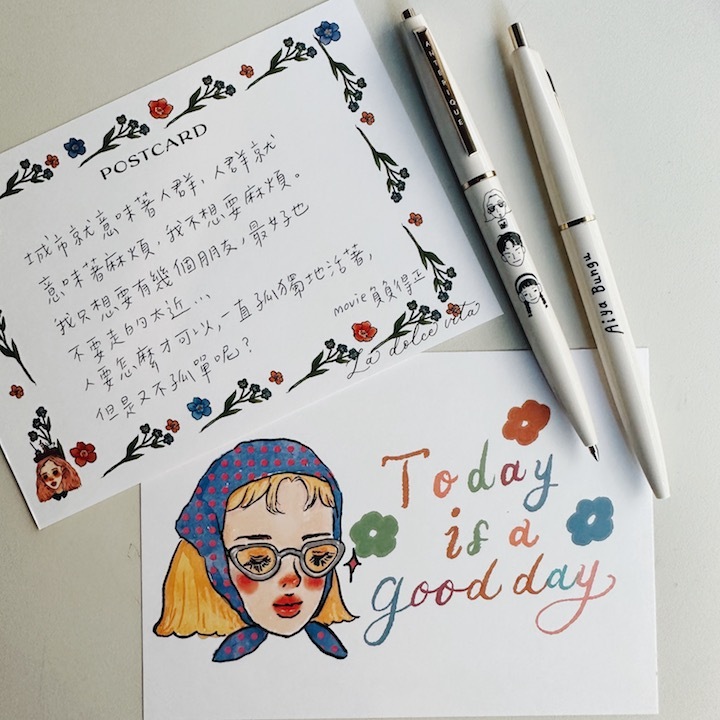 POSTCARD
城市就意味著人群，人群就
意味著麻煩，我不想要麻煩。
我只想要有幾個朋友，最好也
不要走的太近…
人要怎麼才可以，一直孤獨地活著，
但是又不孤單呢？
movie負負得正
La dolce vita
ANTERIQUE
Aiya Bungu
Today
is a
good day